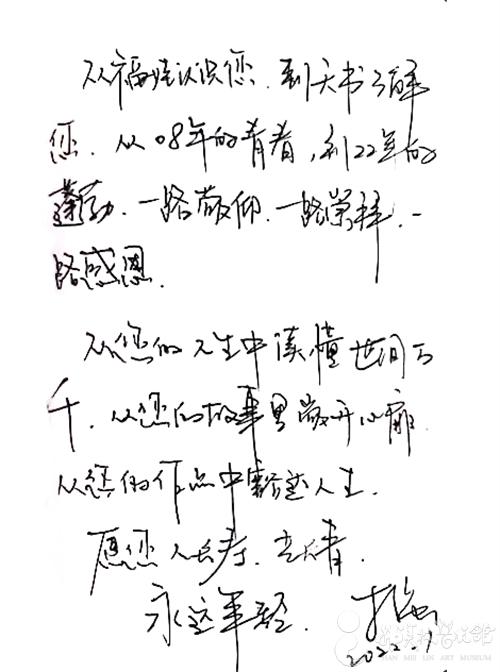 从福娃认识您、到天书了解
您、从08年的青春,到22年的
蓬勃、一路敬仰、一路崇拜、一
路感恩、
从您的人生中读懂世间万
千、从您的故事里敞开心扉、
从您的作品中豁达人生、
愿您人长寿、艺长青、
永远年轻、
2022.1
韩美林艺术馆
HAN MEI LIN ART MUSEUM